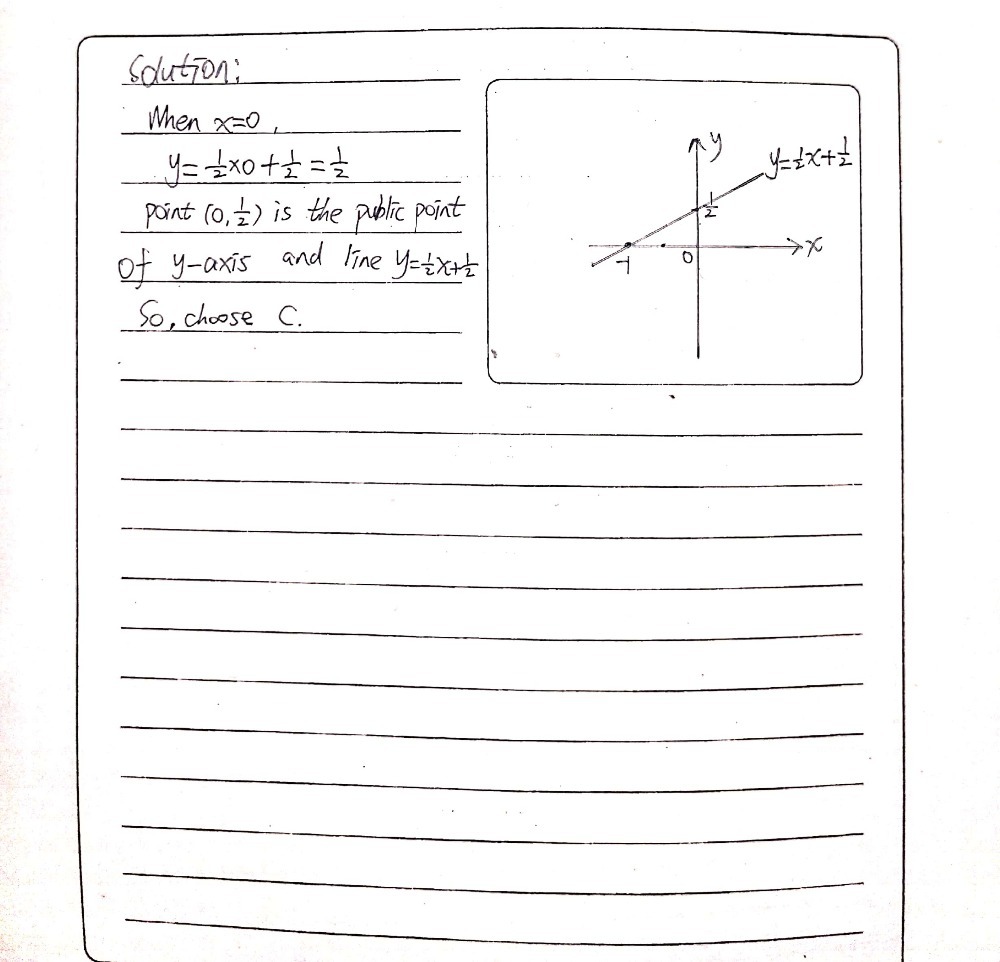 Solution:
When x=0,
y=½×0+½=½
point (0,½) is the public point
of y-axis and line y=½x+½
So, choose C.
y
y=½x+½
½
-1
0
x